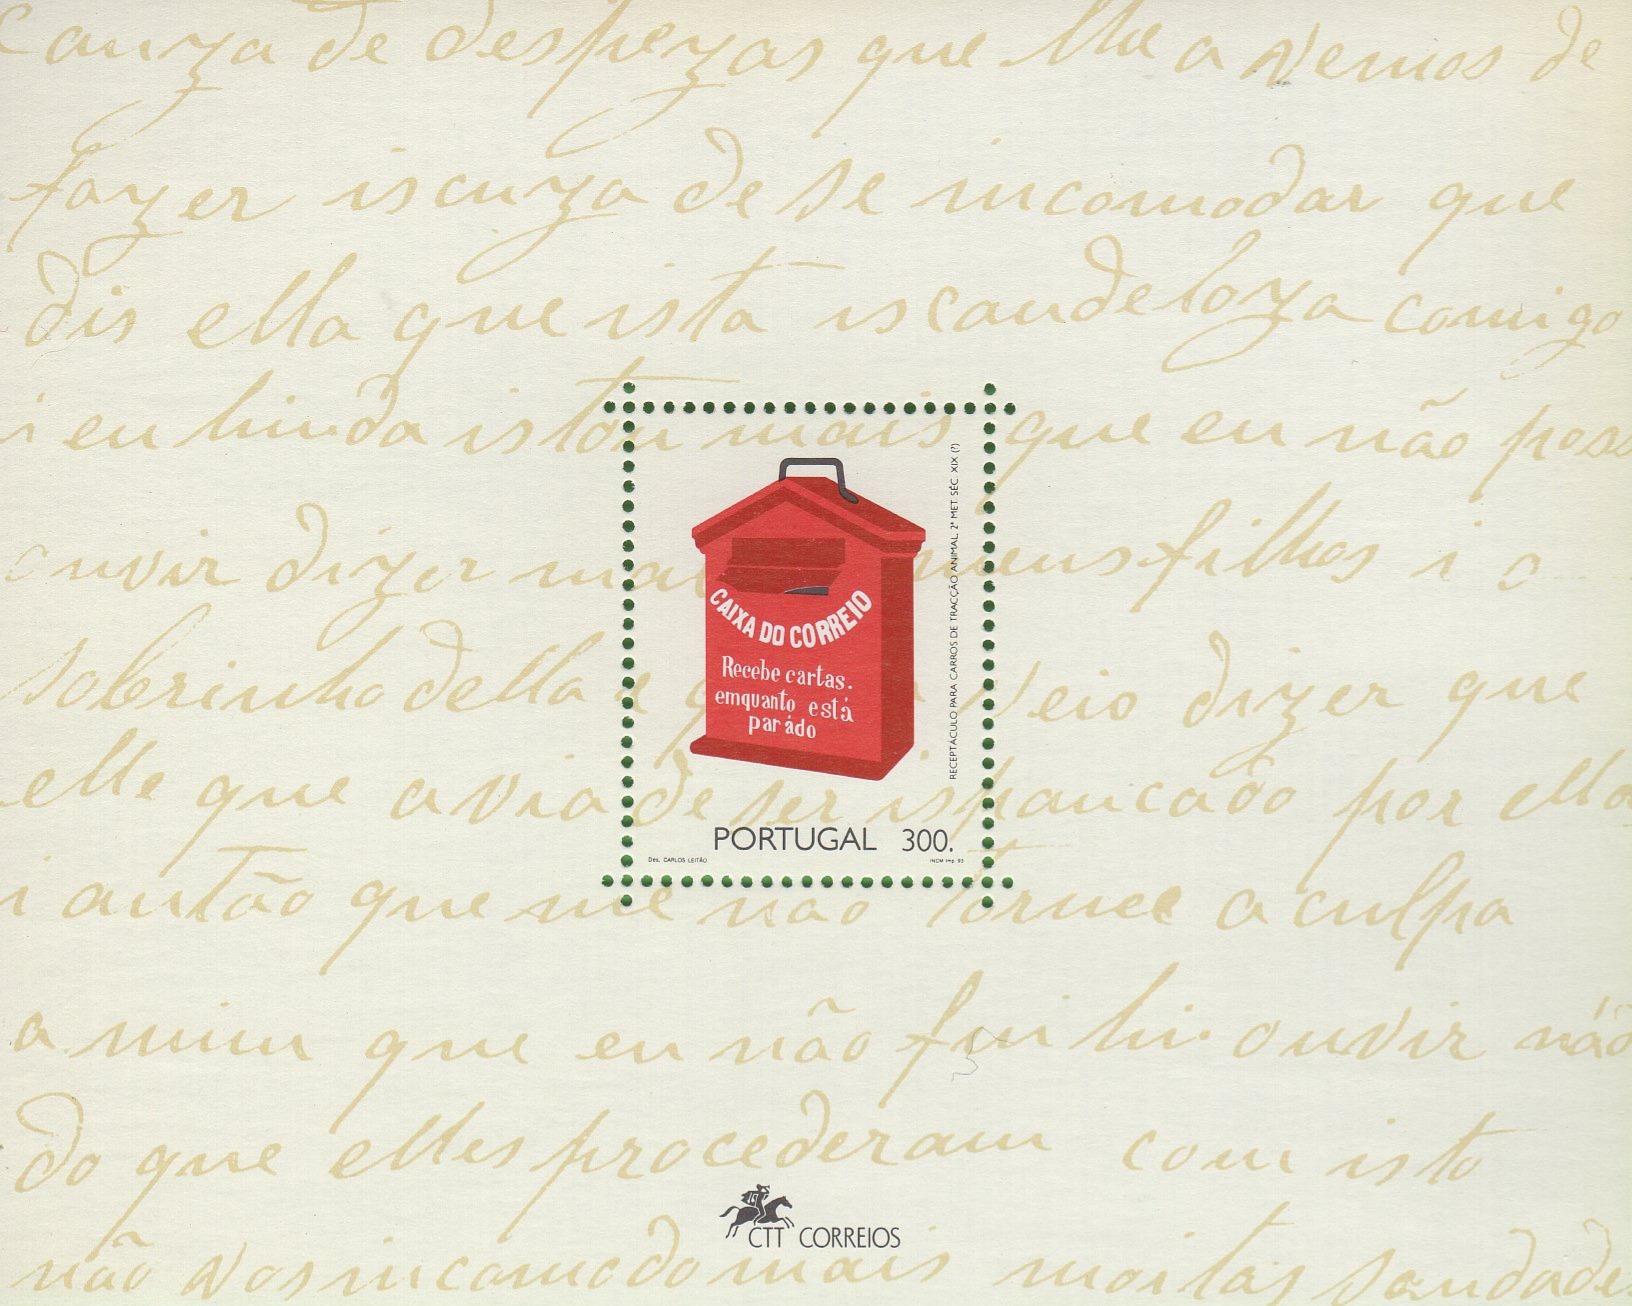 Cauza de despezas que lhe a vemos de
fazer iscuza de se incomodar que
dis ella que ista iscandeloza comigo
i eu hinda istou mais que eu não poss
ouvir dizer meus filhos i o
sobrinho della e veio dizer que
elle que avia de ser ispancado por ella
i antão que me não tornec a culpa
a mim que eu não fui hi ouvir não
do que elles procederam com isto
não vos incomodo mais moitas saudades
CAIXA DO CORREIO
Recebe cartas.
emquanto está
parádo
RECEPTÁCULO PARA CARROS DE TRACÇÃO ANIMAL. 2ª MET. SÉC. XIX (?)
PORTUGAL 300.
Des. CARLOS LEITÃO
INCM Imp. 93
CTT CORREIOS